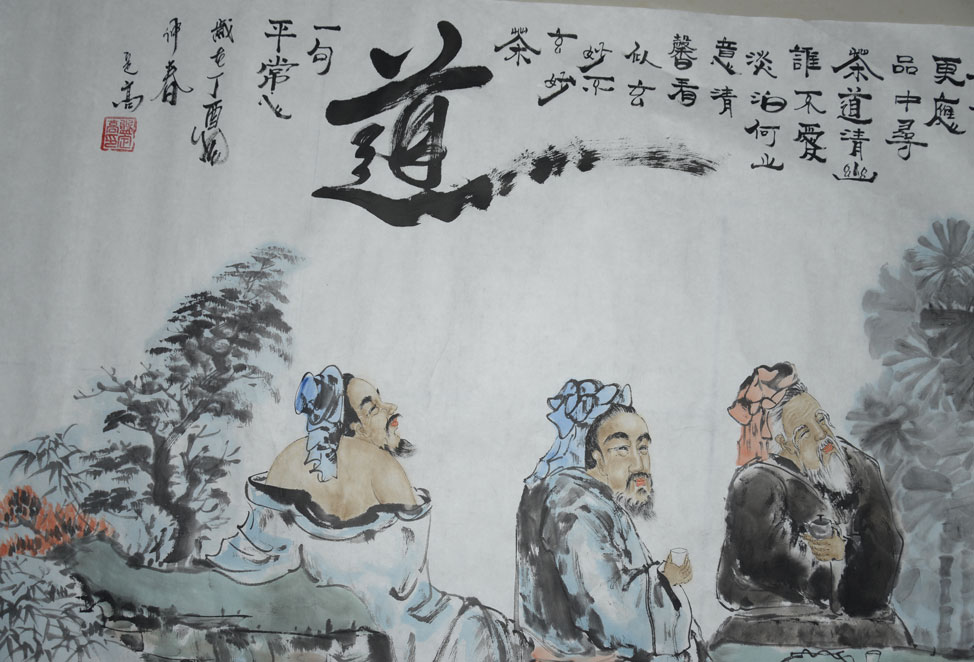 更應
品中尋
茶道清幽
誰不愛
淡泊何止
意清
馨看
似玄
妙不
玄妙
茶
道
一句
平常心
歲在丁酉
仲春